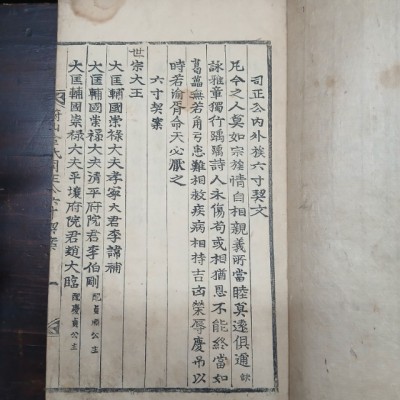 司正公內外族六寸契文
凡今之人莫如宗族情自相親義所當睦莫遠俱通
詠雅章獨行踽踽詩人未傷苟或相猶恩不能終當如
葛藟無若角弓患難相救疾病相持吉凶榮辱慶吊以
時若渝胥命天必厭之
六寸契案
世宗大王
大匡輔國崇祿大夫孝寧大君李諱補
大匡輔國崇祿大夫淸平府院君李伯剛 配貞順公主
大匡輔國崇祿大夫平壤府院君趙大臨 配慶貞公主